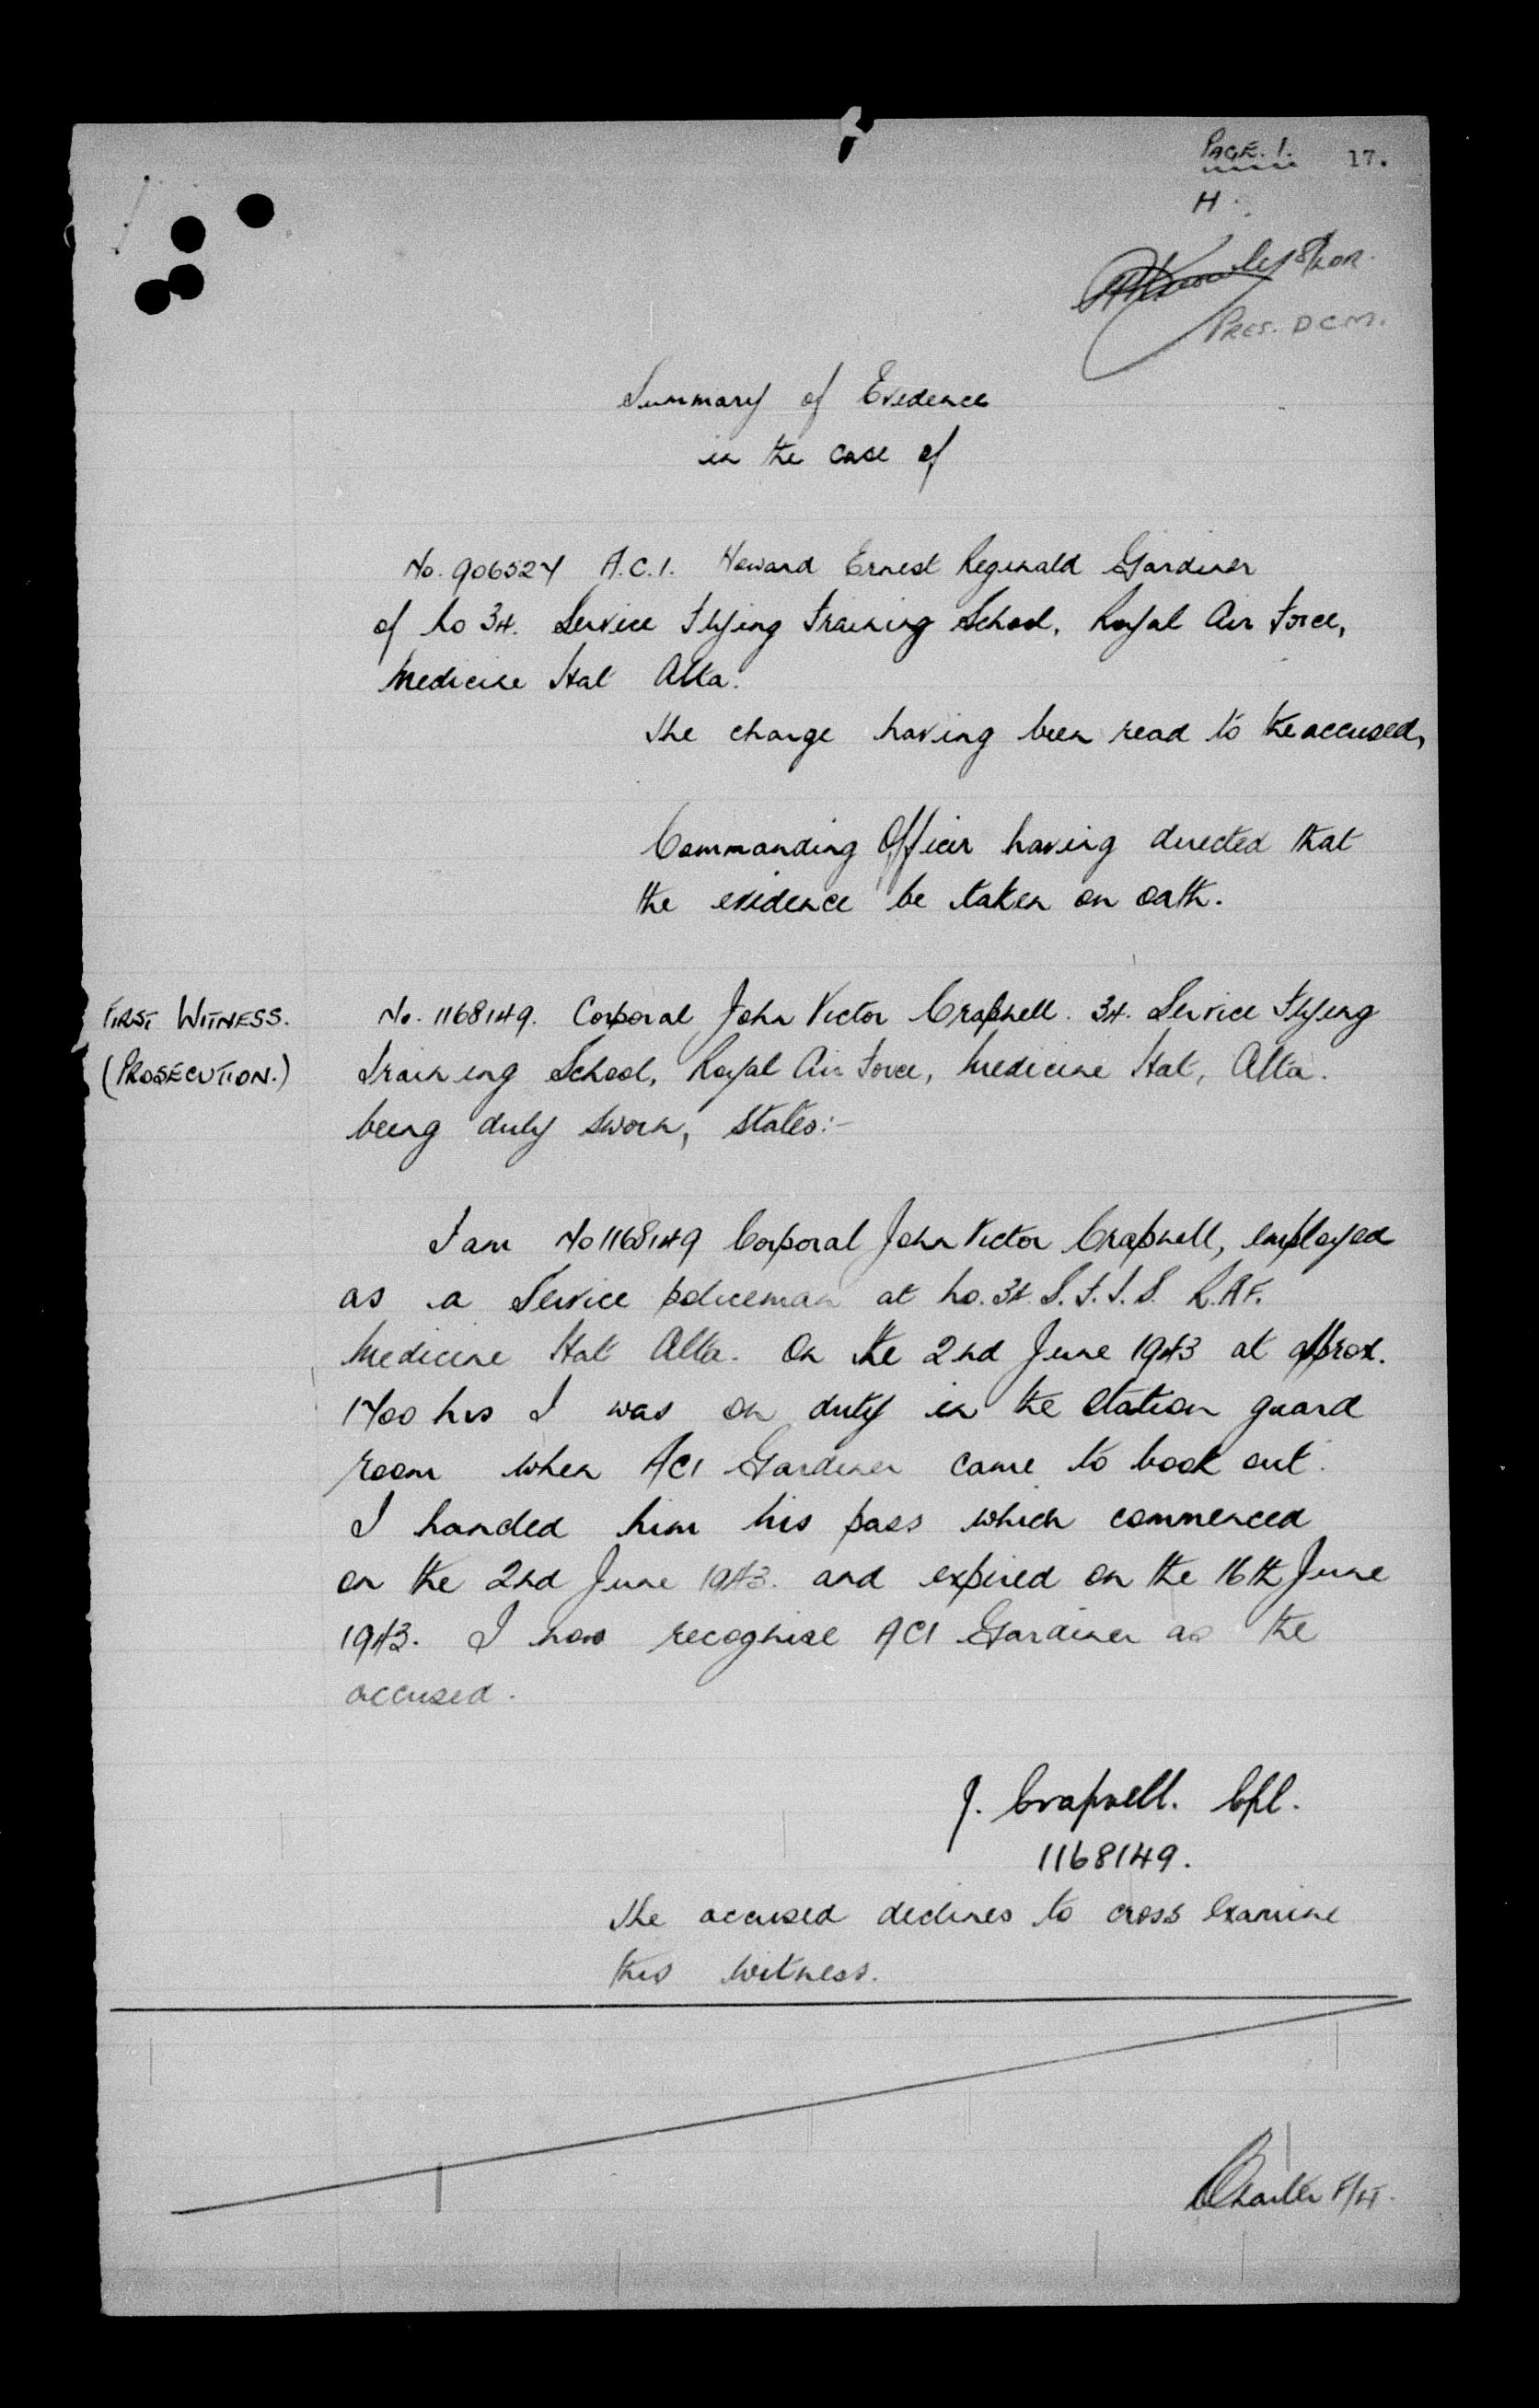 PAGE. 1. 17.
H.
S/LDR.
PRES. DCM.
Summary of Evidence
in the case of
No. 906527 A.C.1. Howard Ernest Reginald Gardiner
of No 34. Service Flying Training School, Royal Air Force,
Medicine Hat Alta.
The charge having been read to the accused,
Commanding Officer having directed that
the evidence be taken on oath.
FIRST WITNESS.
(PROSECUTION.)
No. 1168149. Corporal John Victor Crapnell. 34. Service Flying
Training School, Royal Air Force, Medicine Hat, Alta.
being duly sworn, states:-
I am No 1168149 Corporal John Victor Crapnell, employed
as a Service policeman at No. 34. S.F.T.S. R.A.F.
Medicine Hat Alta. On the 2nd June 1943 at approx.
1700 hrs I was on duty in the station guard
room when AC1 Gardiner came to book out.
I handed him his pass which commenced
on the 2nd June 1943. and expired on the 16th June
1943. I now recognise AC1 Gardiner as the
accused.
J. Crapnell. Cpl.
1168149.
The accused declines to cross examine
this witness.
F/Lt.